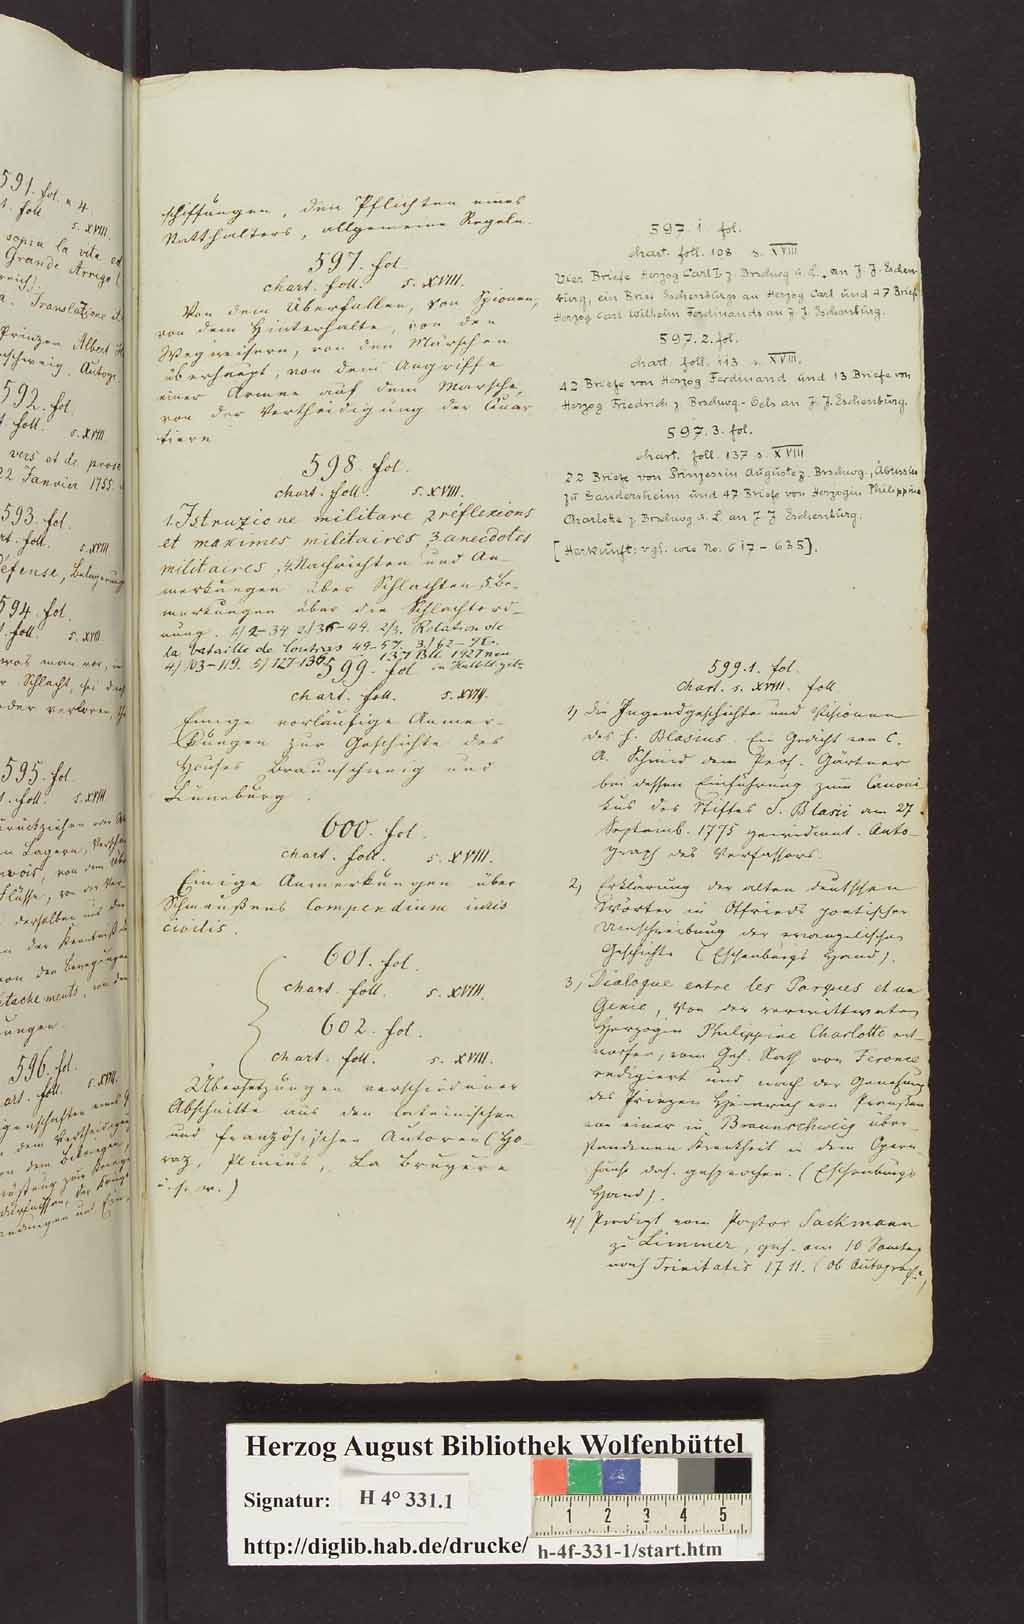 591. fol. u 4.
t. foll. s. XVIII.
sopra la vita ed
Grande Arrigo
Translazione
Prinzen Albert
nschweig. Autogr.
592. fol.
t foll. s. XVIII
vers et de prose
22 Janvier 1755.
593. fol.
rt. foll. s. XVIII
éfense, Belagerung
594. fol.
t. foll. s. XVIII.
was man vor, 
r Schlacht, sei
oder verloren,
595. fol.
t. foll. s. XVIII
urückziehen
n Lagern,
Flüsse, von der
derselben
n der Kenntniß
von den Bewegungen
tachements, von den
ungen.
596. fol.
art. foll. s. XVIII.
genschaften eines
schiffungen, den Pflichten eines
Statthalters, allgemeine Regeln.
597. fol.
chart. foll. s. XVIII.
Von dem Überfallen, von Spionen,
von dem Hinterhalte, von den
Wegweisern, von den Märschen
überhaupt, von dem Angriffe
einer Armee auf dem Marsche,
von der Vertheidigung der Quar
tiere
598. fol.
chart. foll. s. XVIII.
1. Istruzione militare 2 réflexions
et maximes militaires 3 anecdotes
militaires, 4. Nachrichten und An-
merkungen über Schlachten, 5 Be-
merkungen über die Schlachtord-
nung. 1) 2-34 2) 35-44. 2/3. Relation de
la bataille de Coutras 49-57. 3) 62-
4) 103-119. 5) 127-136 137 Bll. 1927 neu
in Halbld. geb.
599. fol
chart. foll. s. XVIII.
Einige vorläufige Anmer-
kungen zur Geschichte des
Hauses Braunschweig und
Lüneburg.
600. fol.
chart. foll. s. XVIII.
Einige Anmerkungen über
Schmaußens Compendium iuris
civilis.
601. fol.
chart. foll. s. XVIII.
602. fol.
chart. foll. s. XVIII.
Übersetzungen verschiedener
Abschnitte aus den lateinischen
und französischen Autoren (Ho
raz, Plinius, La Bruyere
u. s. w.)
597. 1 fol.
chart. foll. 108 s. XVIII
Vier Briefe Herzog Carl I. z. Brschwg u. L., an J. J. Eschen-
burg, ein Brief Eschenburgs an Herzog Carl und 47 Briefe
Herzog Carl Wilhelm Ferdinands an J. J. Eschenburg.
597. 2. fol.
chart. foll. 113 s. XVIII.
42 Briefe von Herzog Ferdinand und 13 Briefe von
Herzog Friedrich z. Brschwg.-Oels an J. J. Eschenburg.
597. 3. fol.
chart. foll. 137 s. XVIII
22 Briefe von Prinzessin Auguste z. Brschwg., Äbtissin
zu Gandersheim und 47 Briefe von Herzogin Philippine
Charlotte z Brschwg u. L. an J J Eschenburg.
[Herkunft: vgl. wie No. 617-635].
599. 1. fol.
chart. s. XVIII. foll
1) Die Jugendgeschichte und Visionen
des h. Blasius. Ein Gedicht von C.
A. Schmid dem Prof. Gärtner
bei dessen Einführung zum Canoni
kus des Stiftes S. Blasii am 27
Septemb. 1775 gewidmet. Auto-
graph des Verfassers.
2) Erklärung der alten deutschen
Wörter in Otfrieds poetischer
Umschreibung der evangelischen
Geschichte (Eschenburgs Hand).
3) Dialogue entre les Parques et un
Genie, von der verwittweten
Herzogin Philippine Charlotte ent-
worfen, vom Geh. Rath von Feronce
redigiert und nach der Genesung
des Prinzen Heinrich von Preußen
von einer in Braunschweig über-
standenen Krankheit in dem Opern
hause das. gesprochen. (Eschenburgs
Hand).
4) Predigt vom Pastor Sackmann
zu Limmer, geh. am 10 Sonntag
nach Trinitatis 1711. (Ob Autograph?)
Herzog August Bibliothek Wolfenbüttel
Signatur: H 4° 331.1
1 2 3 4 5
http://diglib.hab.de/drucke/ h-4f-331-1/start.htm